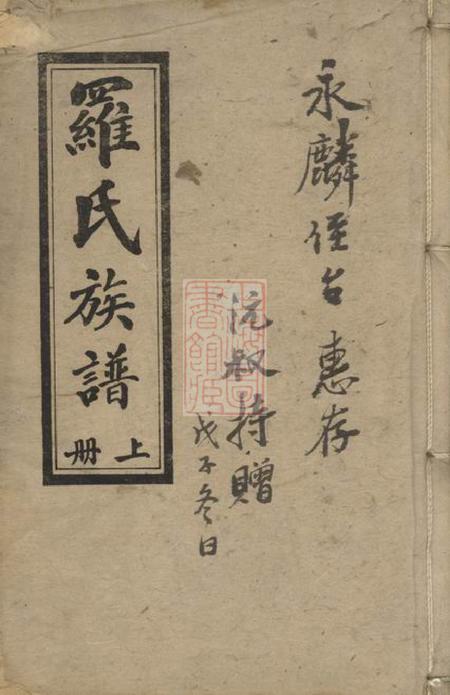 永麟侄台惠存
沅叔持贈
戊子冬日
羅氏族譜
上册